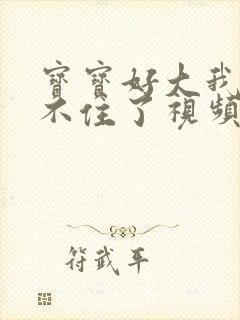 寶寶好大我
不住了視頻
符武平